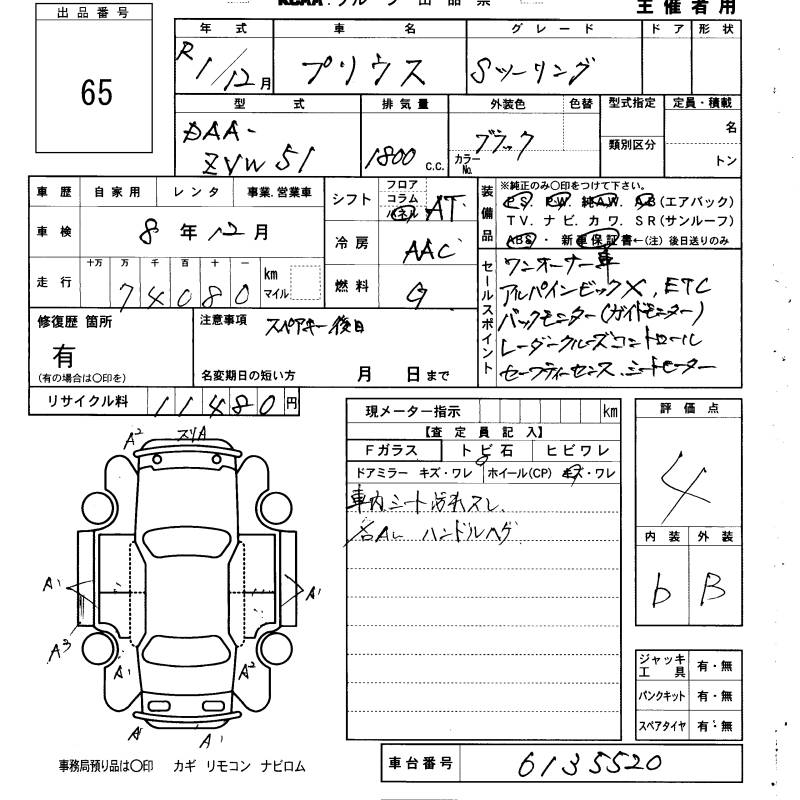 出品番号
65
主催者用
年式 車名 グレード ドア 形状
R1/12月 プリウス Sツーリング
型式 排気量 外装色 色替 型式指定 定員・積載
DAA-
ZVW51 1800 c.c. ブラック カラーNo. 類別区分 名
トン
車歴 自家用 レンタ 事業.営業車
シフト フロア コラム パネル AT
装備品 ※純正のみ〇印をつけて下さい。
P.S. P.W. 純A.W. A.B(エアバック)
T.V. ナビ. カワ. S.R(サンルーフ)
ABS・新車保証書←(注)後日送りのみ
車検 8年12月
冷房 AAC
走行 十万 万 千 百 十 一
74080 km マイル
燃料 G
セールスポイント
ワンオーナー車
アルパインビックX, ETC
バックモニター(ガイドモニター)
レーダークルーズコントロール
セーフティーセンス. シートヒーター
修復歴 箇所
有
(有の場合は〇印を)
注意事項 スペアキー後日
名変期日の短い方 月 日まで
リサイクル料 11480円
現メーター指示 km
【査定員記入】
Fガラス トビ石 ヒビワレ
ドアミラー キズ・ワレ ホイール(CP) キズ・ワレ
車内シート汚れスレ
ハンドルハゲ
評価点
4
内装 外装
b B
A2 スリA
A1 A1
A3 A1 A2
A A1
ジャッキ工具 有・無
パンクキット 有・無
スペアタイヤ 有・無
事務局預り品は〇印 カギ リモコン ナビロム
車台番号 6135520